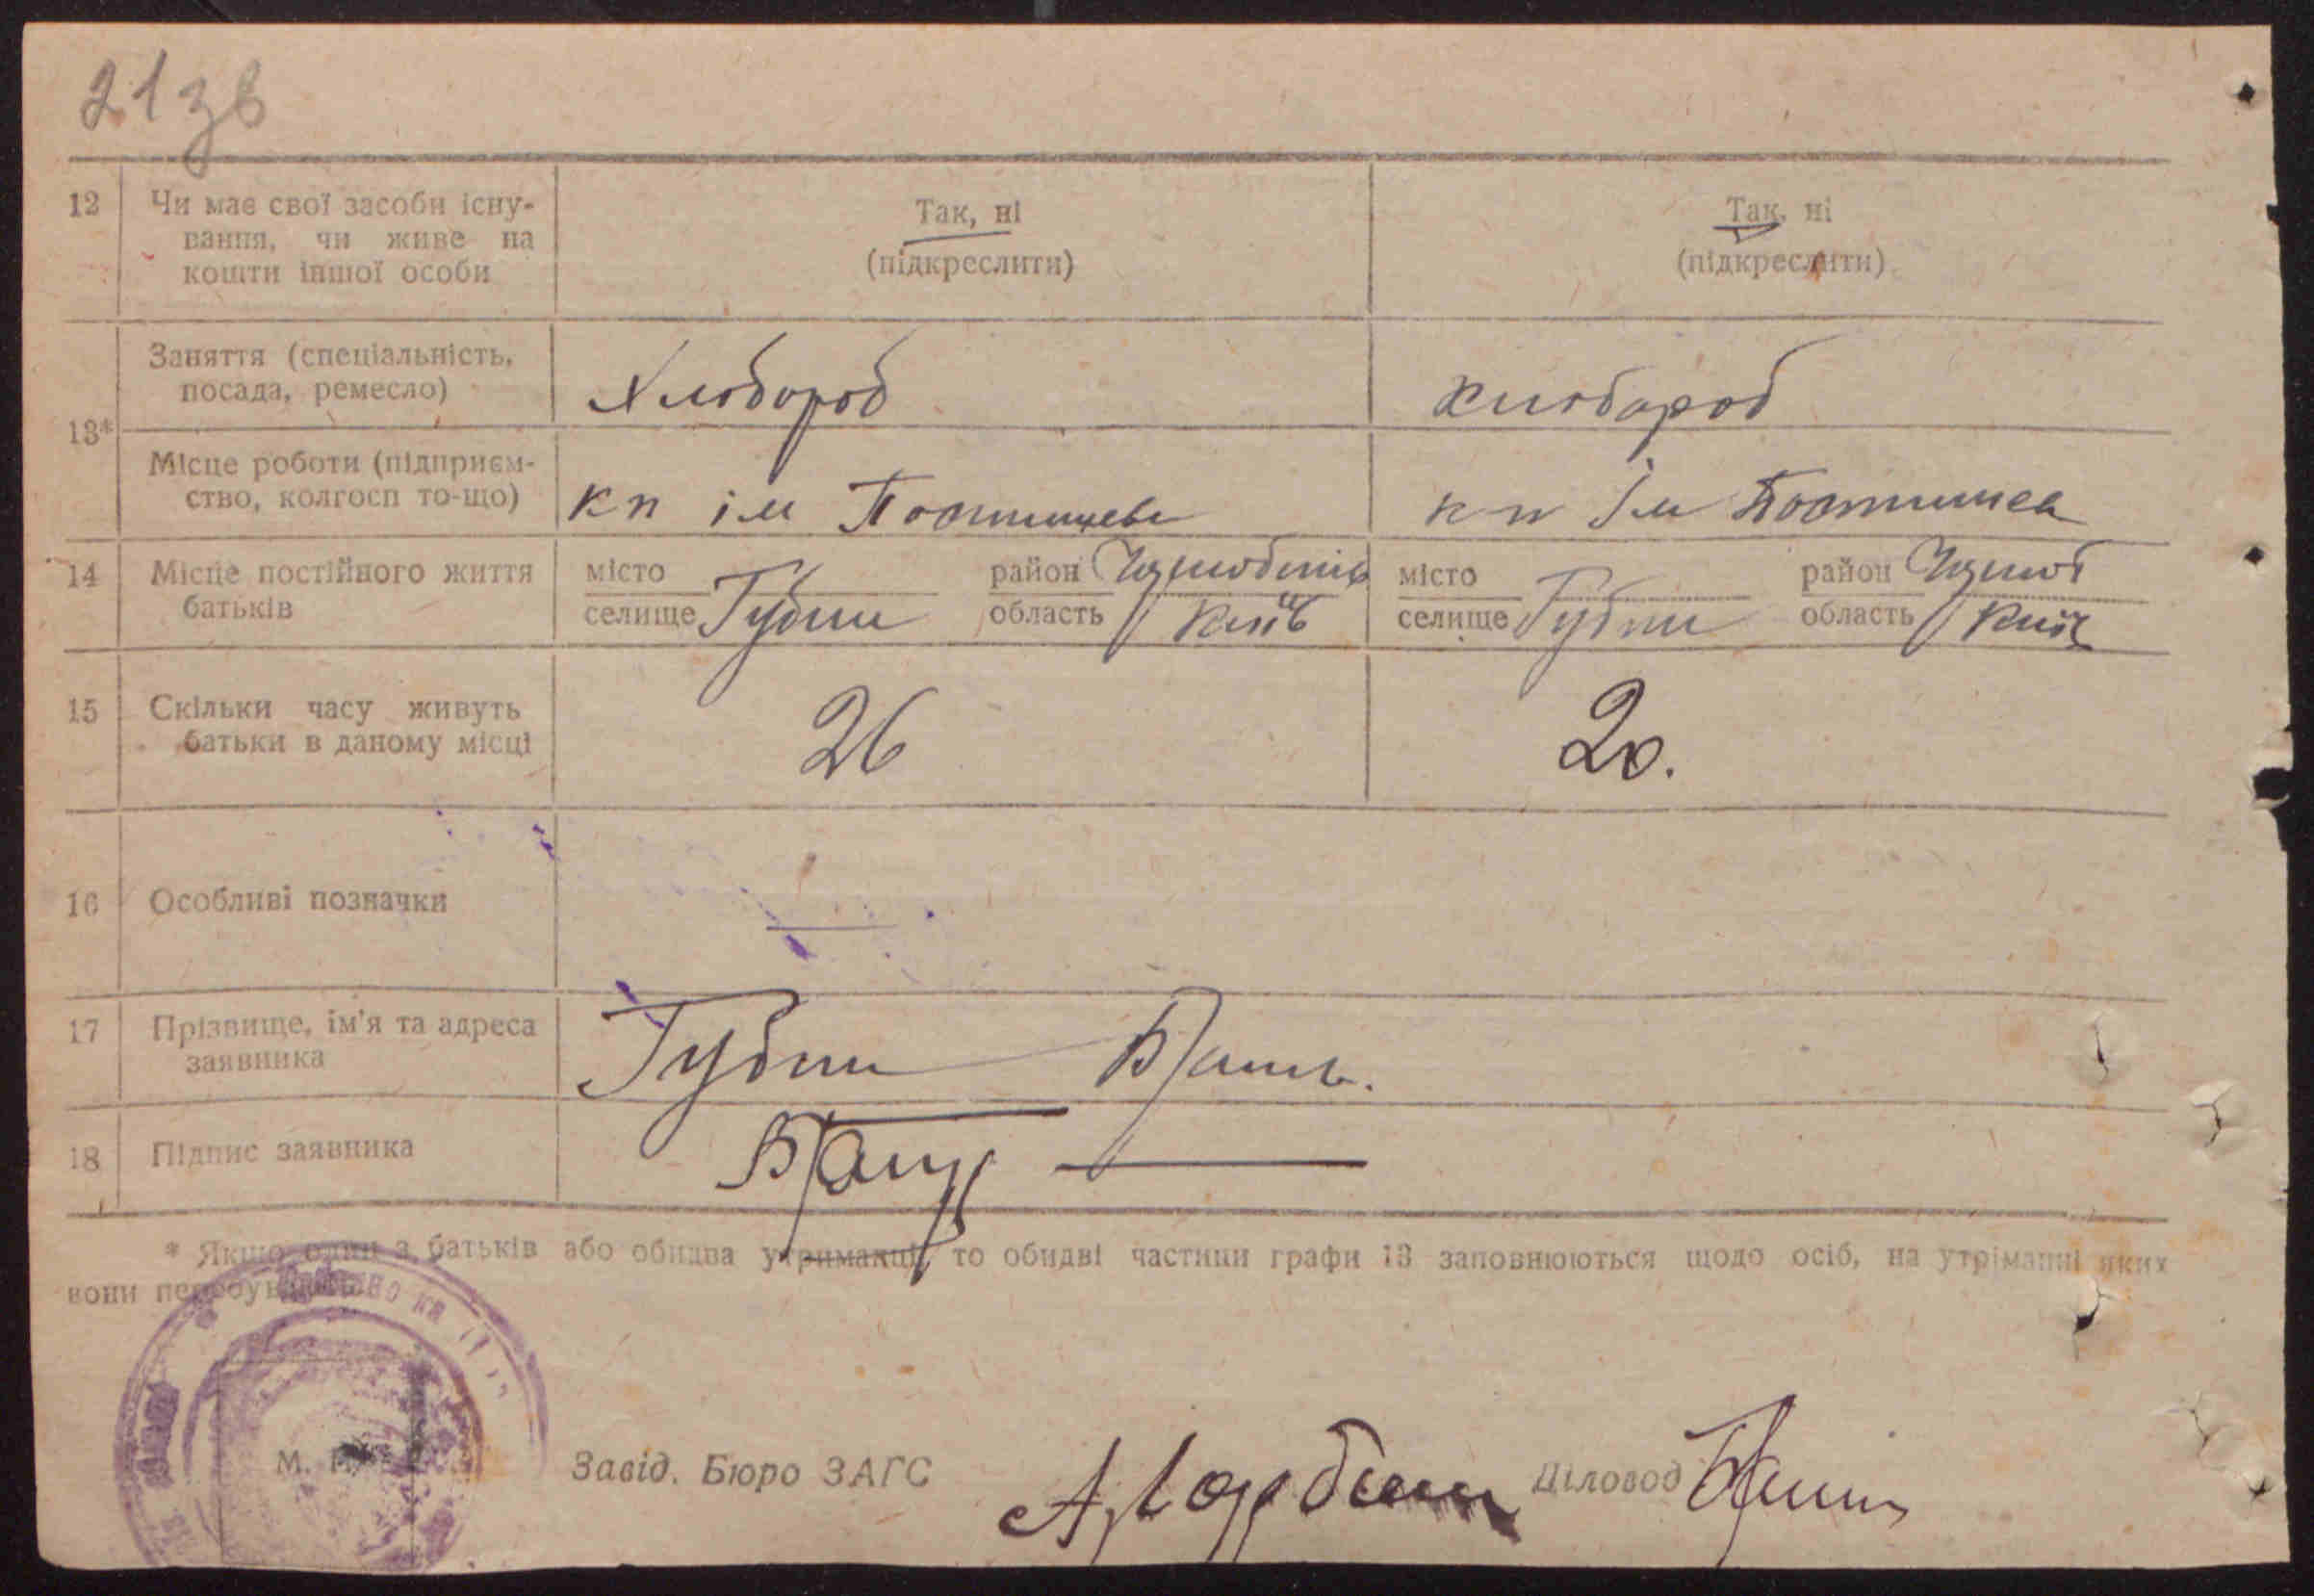 21 зв
12 Чи має свої засоби існу-
вання, чи живе на
кошти іншої особи
Так, ні
(підкреслити)
Так, ні
(підкреслити)
13*
Заняття (спеціальність,
посада, ремесло)
Хлібороб
хлібороб
Місце роботи (підприєм-
ство, колгосп то-що)
кп ім Постишева
кп ім Постишева
14 Місце постійного життя
батьків
місто
селище Губин
район
область Київ
місто
селище Губин
район
область Київ
15 Скільки часу живуть
батьки в даному місці
26
20.
16 Особливі позначки
17 Прізвище, ім'я та адреса
заявника
Губин
18 Підпис заявника
* Якщо один з батьків або обидва утриманці, то обидві частини графи 13 заповнюються щодо осіб, на утріманні яких
вони перебувають.
М. П.
Завід. Бюро ЗАГС
Діловод